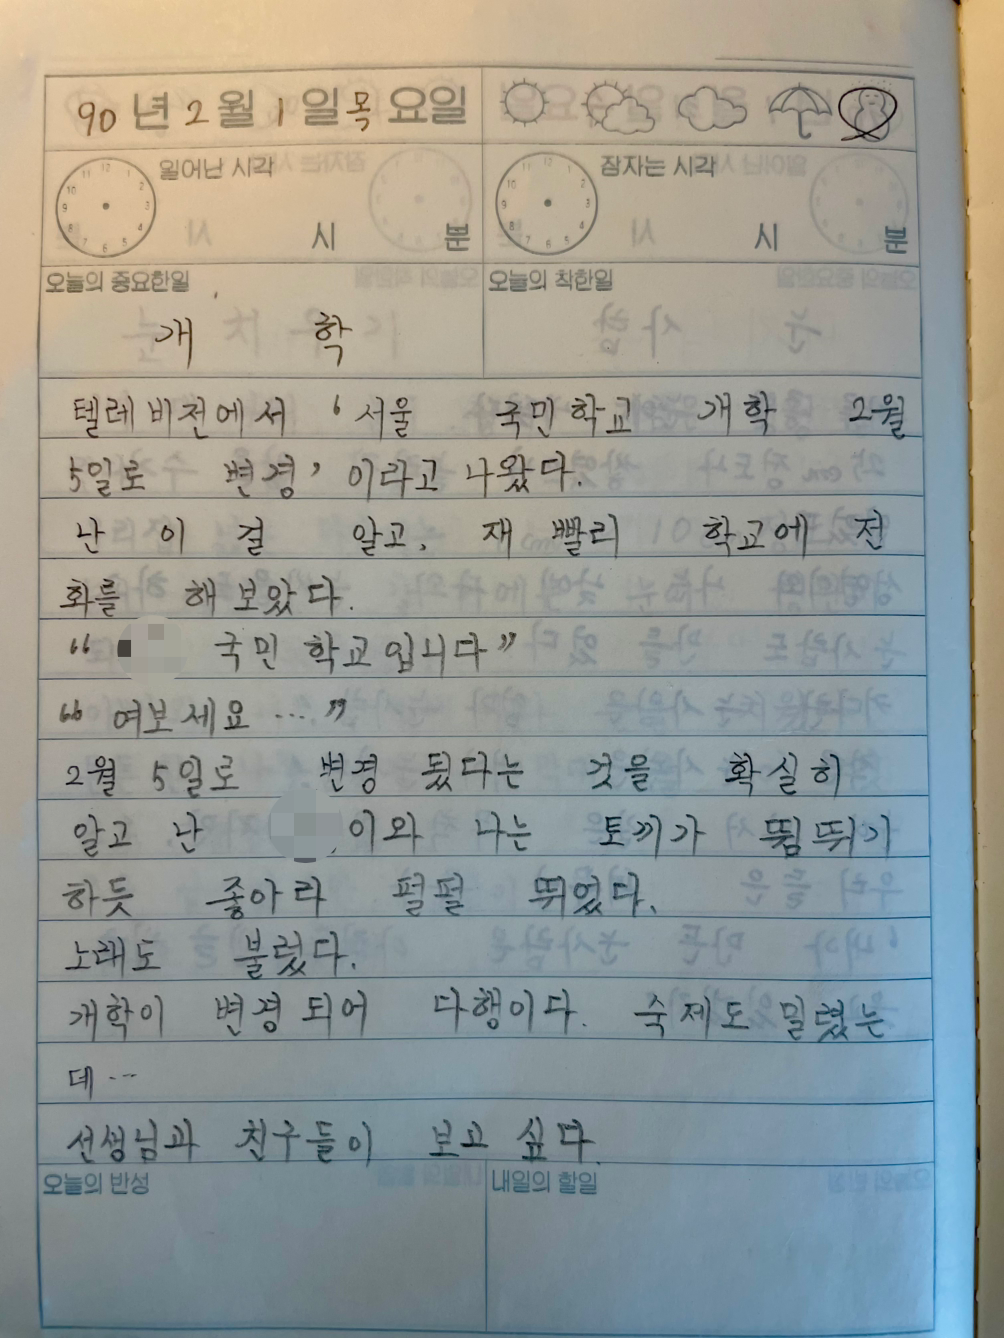 90 년 2 월 1 일 목 요일
일어난 시각 잠자는 시각
시 분 시 분
오늘의 중요한일 오늘의 착한일
개 학
텔레비전에서 ‘서울 국민학교 개학 2월
5일로 변경’이라고 나왔다.
난 이 걸 알고, 재빨리 학교에 전
화를 해 보았다.
“ 국민 학교입니다”
“여보세요 …”
2월 5일로 변경 됬다는 것을 확실히
알고 난 이와 나는 토끼가 뜀뛰기
하듯 좋아라 펄펄 뛰었다.
노래도 불렀다.
개학이 변경 되어 다행이다. 숙제도 밀렸는
데…
선생님과 친구들이 보고 싶다.
오늘의 반성 내일의 할일